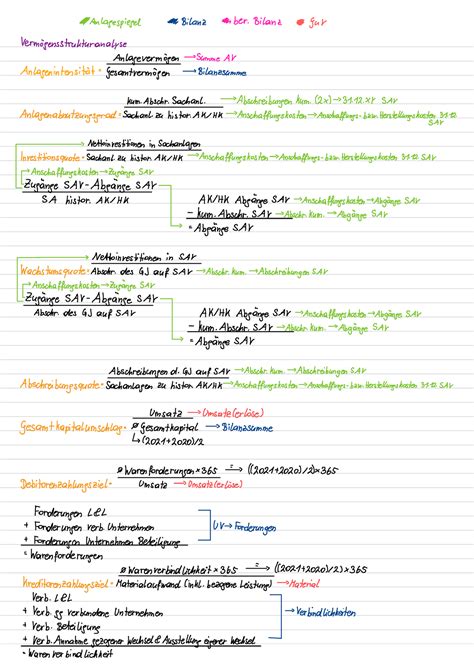 Anlagespiegel Bilanz ber. Bilanz GuV
Vermögensstrukturanalyse
Anlagevermögen → Summe AV
Anlagenintensität = Gesamtvermögen → Bilanzsumme
kum. Abschr. Sachanl. → Abschreibungen kum. (2x) → 31.12.XY SAV
Anlagenabnutzungsgrad = Sachanl. zu histor. AK/HK → Anschaffungskosten → Anschaffungs- bzw. Herstellungskosten 31.12.
SAV
Nettoinvestitionen in Sachanlagen
Investitionsquote = Sachanl. zu histor. AK/HK → Anschaffungskosten → Anschaffungs- bzw. Herstellungskosten 31.12. SAV
→ Anschaffungskosten → Zugänge SAV
Zugänge SAV - Abgänge SAV
SA histor. AK/HK
AK/HK Abgänge SAV → Anschaffungskosten → Abgänge SAV
- kum. Abschr. SAV → Abschr. kum. → Abgänge SAV
= Abgänge SAV
Nettoinvestitionen in SAV
Wachstumsquote = Abschr. des GJ auf SAV → Abschr. kum. → Abschreibungen SAV
→ Anschaffungskosten → Zugänge SAV
Zugänge SAV - Abgänge SAV
Abschr. des GJ auf SAV
AK/HK Abgänge SAV → Anschaffungskosten → Abgänge SAV
- kum. Abschr. SAV → Abschr. kum. → Abgänge SAV
= Abgänge SAV
Abschreibungen d. GJ auf SAV → Abschr. kum. → Abschreibungen SAV
Abschreibungsquote = Sachanlagen zu histor. AK/HK → Anschaffungskosten → Anschaffungs- bzw. Herstellungskosten 31.12. SAV
Umsatz → Umsatz(erlöse)
Gesamtkapitalumschlag = ø Gesamtkapital → Bilanzsumme
↳ (2021+2020)/2
ø Warenforderungen × 365 → ((2021+2020)/2) × 365
Debitorenzahlungsziel = Umsatz → Umsatz(erlöse)
Forderungen L&L
+ Forderungen verb. Unternehmen
+ Forderungen Unternehmen Beteiligung
UV → Forderungen
= Warenforderungen
ø Warenverbindlichkeit × 365 → ((2021+2020)/2) × 365
Kreditorenzahlungsziel = Materialaufwand (inkl. bezogene Leistung) → Material
Verb. L&L
+ Verb. gg verbundene Unternehmen
+ Verb. Beteiligung
+ Verb. Annahme gezogener Wechsel & Ausstellung eigener Wechsel
→ Verbindlichkeiten
= Warenverbindlichkeit